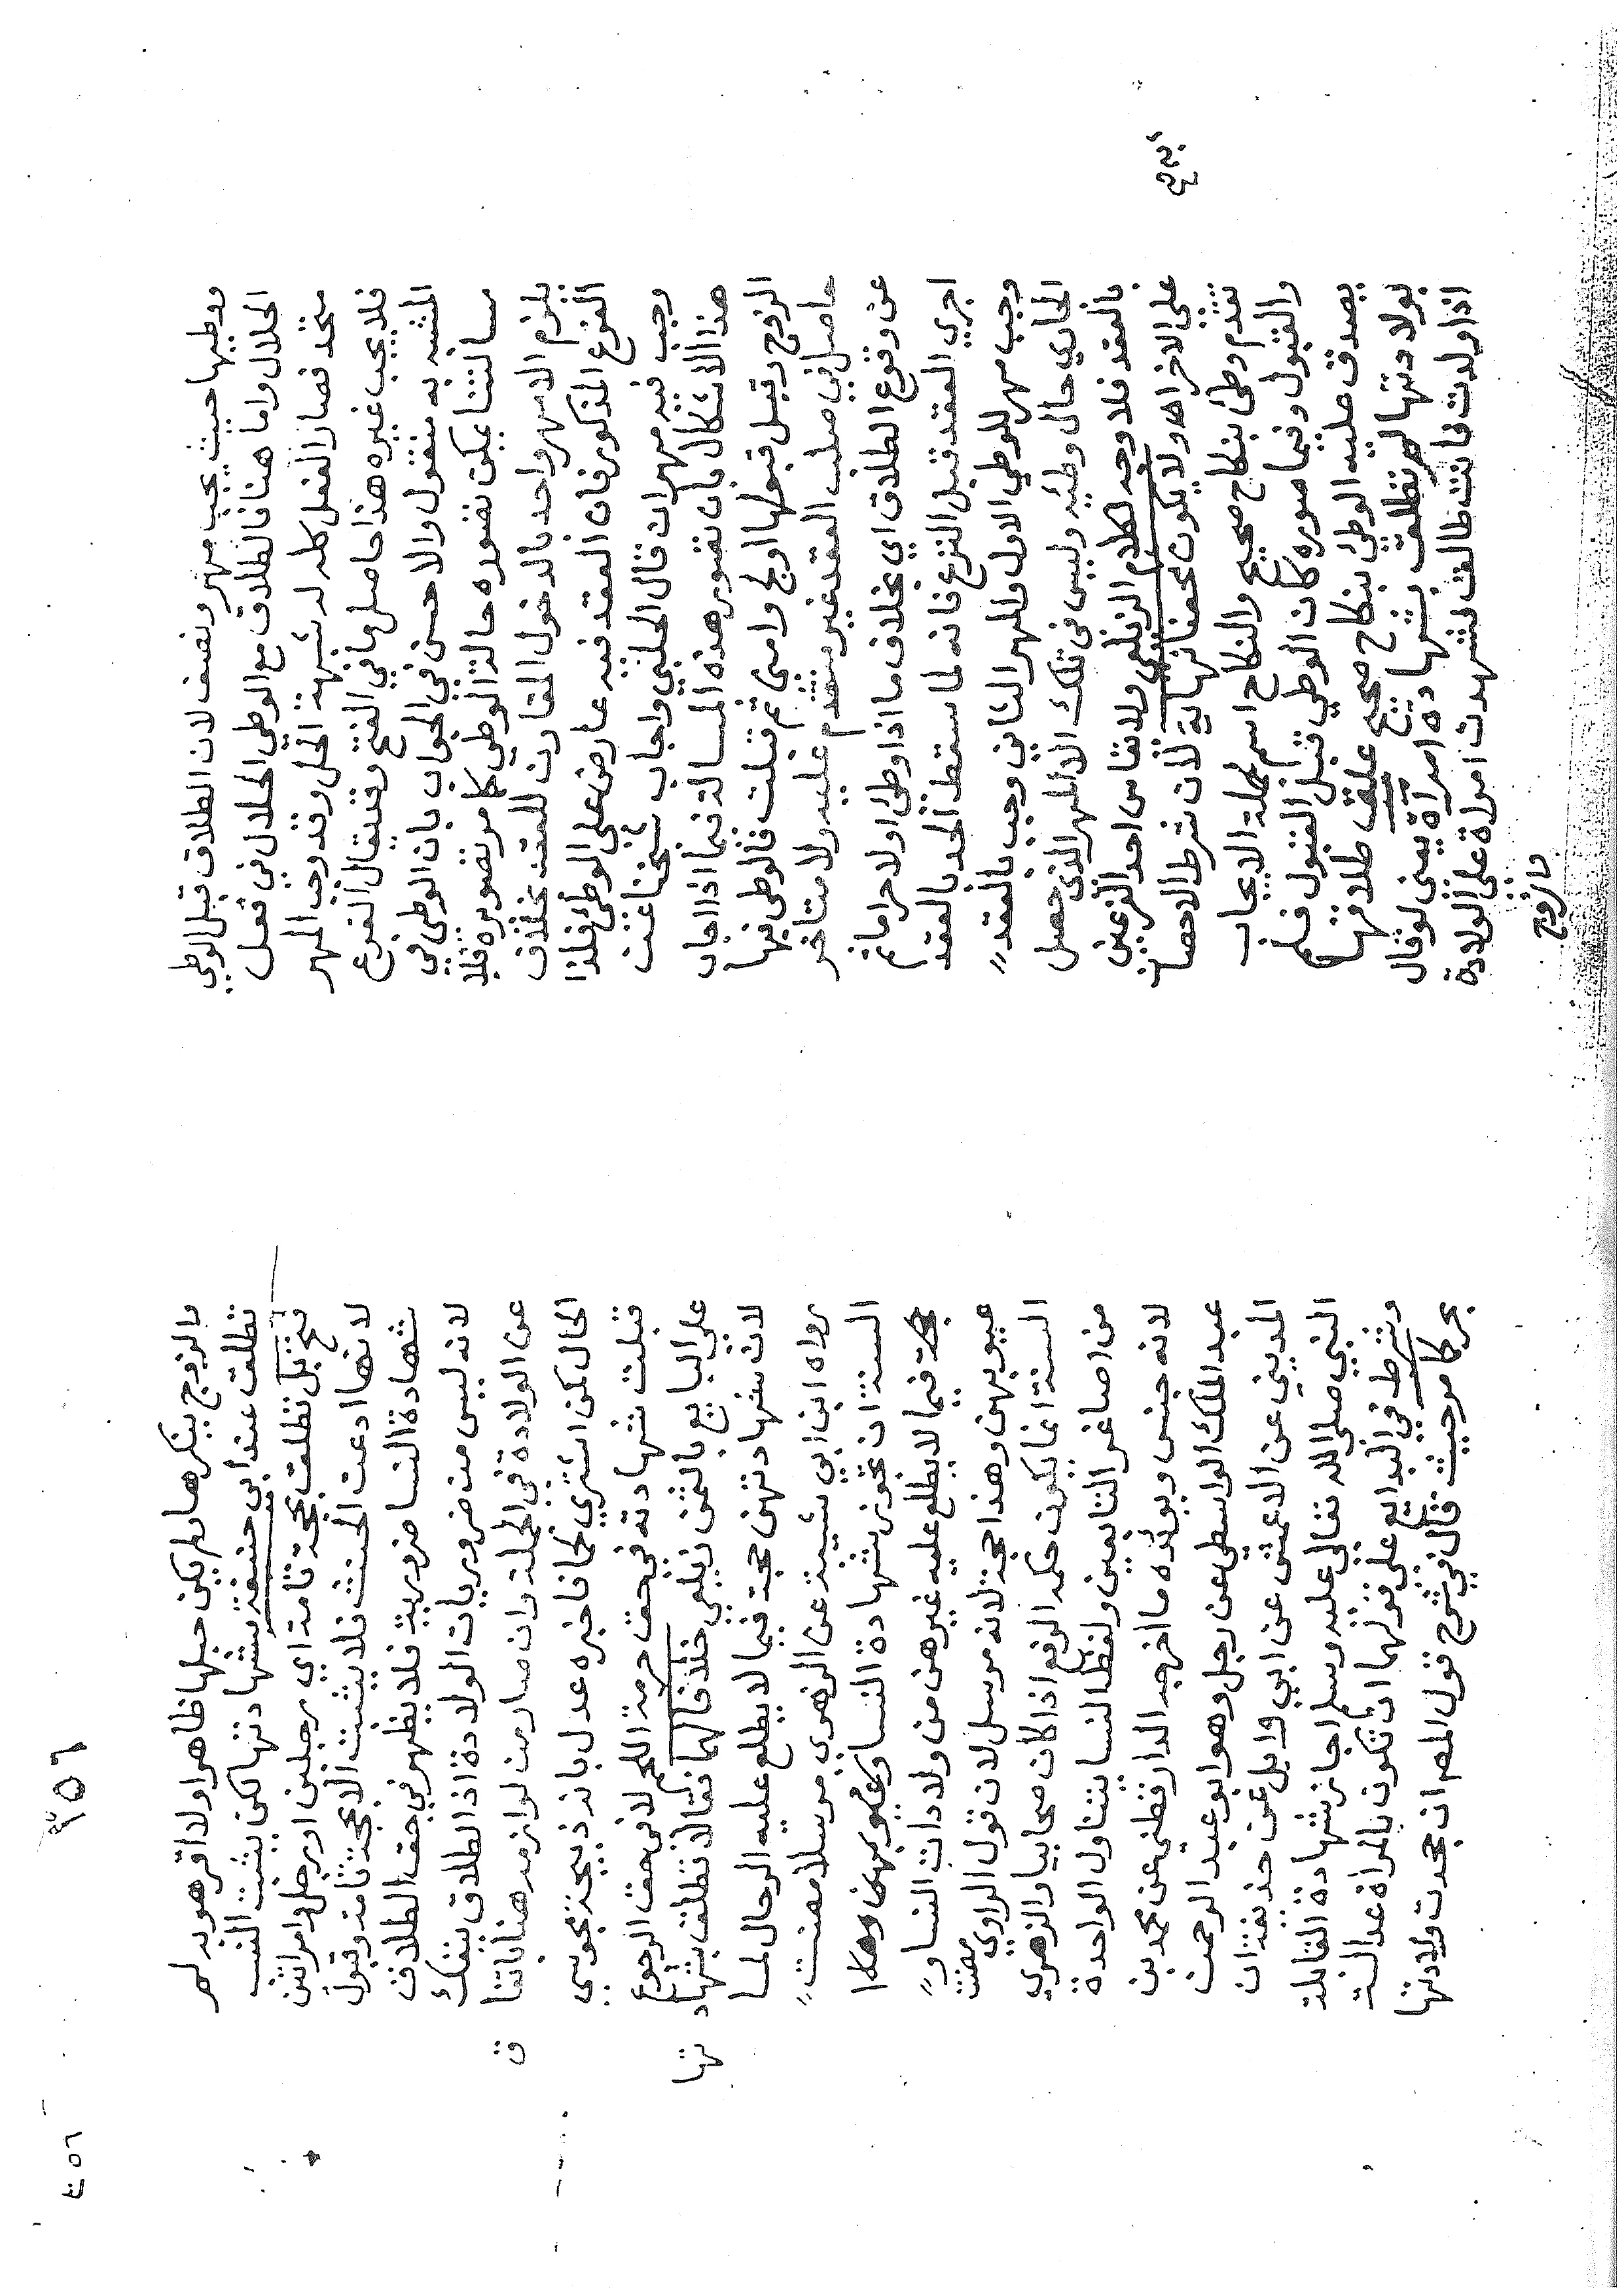 ووطيها حيث يجب مهر ونصف لان الطلاق قبل الوطي
الحلال واما هنا فالطلاق مع الوطي الحلال في فعل
متحد فصار الفعل كله له شبهة الحل وقد وجب المهر
فلا يجب غيره هذا حاصل ما في الفتح وقد يقال الفرع
المشبه به منقول والاحسن في الجواب بان الوطي في
مسالتنا يمكن تصوره حالة الوطي كما مر تصويره فلا
يلزم الا مهر واحد بالدخول المقارن للعقد بخلاف
الفرع المذكور فان العقد فيه عارض على الوطئ فلذا
وجب فيه مهران قال الحلبي واجاب شيخنا عن
هذا الاشكال بان تصوير هذه المسالة فيما اذا اجاب
الزوج وقبل قبولها اولج وامنى ثم قبلت فالوطي فيها
حاصل في صلب العقد غير متقدم عليه ولا متاخر
عن وقوع الطلاق اي بخلاف ما اذا وطئ اولا حراما ثم
اجري العقد قبل النزع فانه لما سقط الحد بالعقد
وجب مهر للوطي الاول والمهر الثاني وجب بالعقد
الجاري حال وطئه وليس في تلك الا المهر الذي حصل
بالعقد فلا وجه لكلام الزيلعي ولا تقاس احد الفرعين
على الاخر اه ولا يكون محصنا نهاية لان شرط الاحصان
تقدم وطئ بنكاح صحيح والنكاح اسم لجملة الايجاب
والقبول وفيما صوره كان الوطي قبل القبول فلم
يصدق عليه الوطئ بنكاح صحيح علق طلاقها
بولادتها لم تطلق بشهادة امرآة يعني لو قال
اذا ولدت فانت طالق فشهدت امراة على الولادة
والزوج
٤٥٦
٣٥٦
والزوج ينكرها ولم يكن حبلها ظاهرا ولا اقر هو به لم
تطلق عند ابي حنيفة بشهادتها لكن يثبت النسب
فتح بل تطلق بحجة تامة اي رجلين او رجل وامراتين
لانها ادعت الحنث فلا يثبت الا بحجة تامة وقبول
شهادة النسا ضرورية فلا يظهر في حق الطلاق
لانه ليس من ضروريات الولادة اذ الطلاق ينفك
عن الولادة في الجملة وان صار من لوازمه هنا باتفاق
الحال كمن اشتري لحما فاخبره عدل بانه ذبيحة مجوسي
قبلت شهادته في حق حرمة اللحم لا في حق الرجوع
على البايع بالثمن زيلعي خلافا لهما فقالا تطلق بشهادتها
لان شهادتهن حجة فيما لا يطلع عليه الرجال لما
رواه ابن ابي شيبة عن الزهري مرسلا مضت
السنة ان تجوز شهادة النسا
فيما لا يطلع عليه غيرهن من ولادات النسا و
عيوبهن وهذا حجة لانه مرسل لان قول الراوي مضت
السنة انما يكون حكمه الرفع اذا كان صحابيا والزهري
من اصاغر التابعين ولفظ النسا يتناول الواحدة
لانه جنس ويويده ما اخرجه الدارقطني عن محمد بن
عبد الملك الواسطي عن رجل وهو ابو عبد الرحمن
المديني عن الاعمش عن ابي وايل عن حذيفة ان
النبي صلى الله تعالى عليه وسلم اجاز شهادة القابلة
وشرط في البدايع على قولهما ان تكون بالمراة عدالة
بحر كما مر حيث قال في شرح قول المص ان جحدت ولادتها